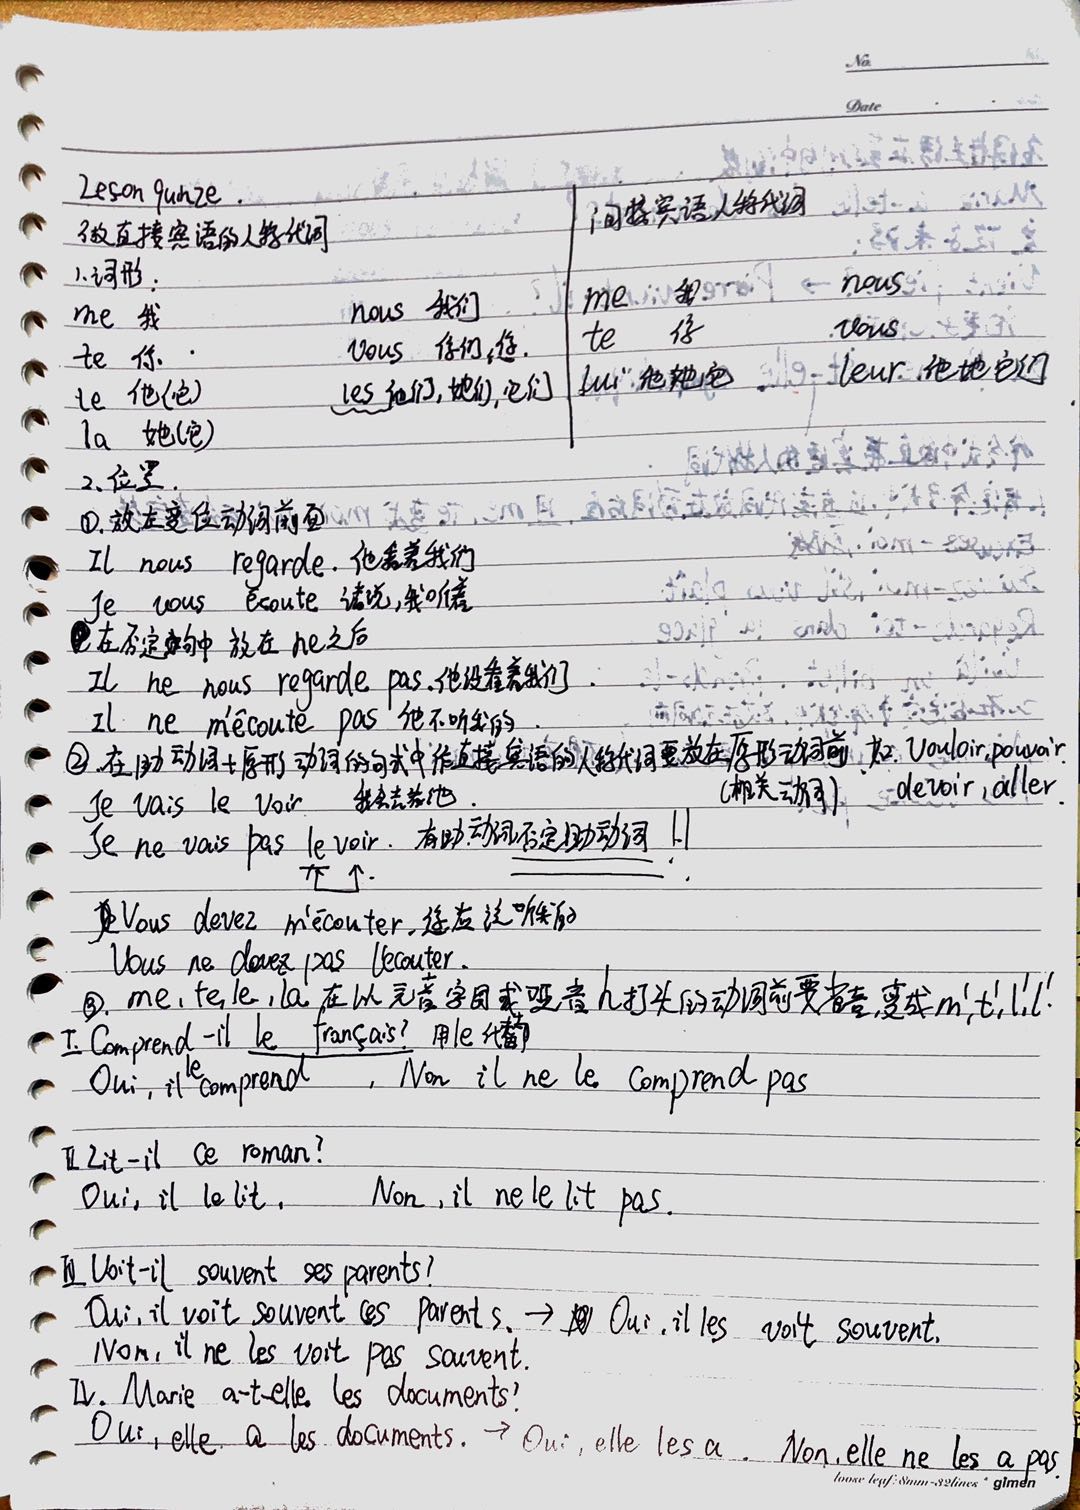 No.
Date
Leson quinze.
做直接宾语的人称代词
间接宾语人称代词
1.词形:
me 我 nous 我们
te 你. vous 你们,您.
le 他(它) les 他们,她们,它们
la 她(它)
me 我 nous
te 你 vous
lui 他她它 leur 他她它们
2.位置.
①.放在变位动词前面
Il nous regarde. 他看着我们
Je vous écoute 请说,我听着
在否定句中 放在 ne之后
Il ne nous regarde pas.他没看着我们
Il ne m'écoute pas 他不听我的.
②.在助动词+原形动词的句式中作直接宾语的人称代词要放在原形动词前 如 vouloir,pouvoir
(相关动词) devoir, aller.
Je vais le voir 我去看他.
Je ne vais pas le voir. 有助动词否定助动词!!
Vous devez m'écouter.您应该听我的
Vous ne devez pas l'écouter.
③. me,te,le,la 在以元音字母或哑音h打头的动词前要省音,变成m',t',l',l'.
I. Comprend-il le français? 用le代替
Oui, il le comprend, Non il ne le comprend pas
II Lit-il ce roman?
Oui, il le lit. Non, il ne le lit pas.
III Voit-il souvent ses parents?
Oui, il voit souvent ces parents. → Oui, il les voit souvent.
Non, il ne les voit pas souvent.
IV. Marie a-t-elle les documents?
Oui, elle a les documents. → Oui, elle les a. Non, elle ne les a pas.
loose leaf: 8mm-32lines * gimen